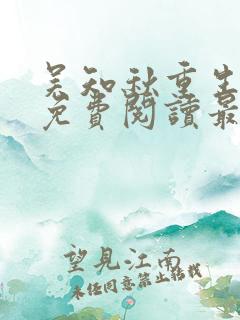 吴知秋重生
免費閱讀最
望見江南
未经同意禁止转载